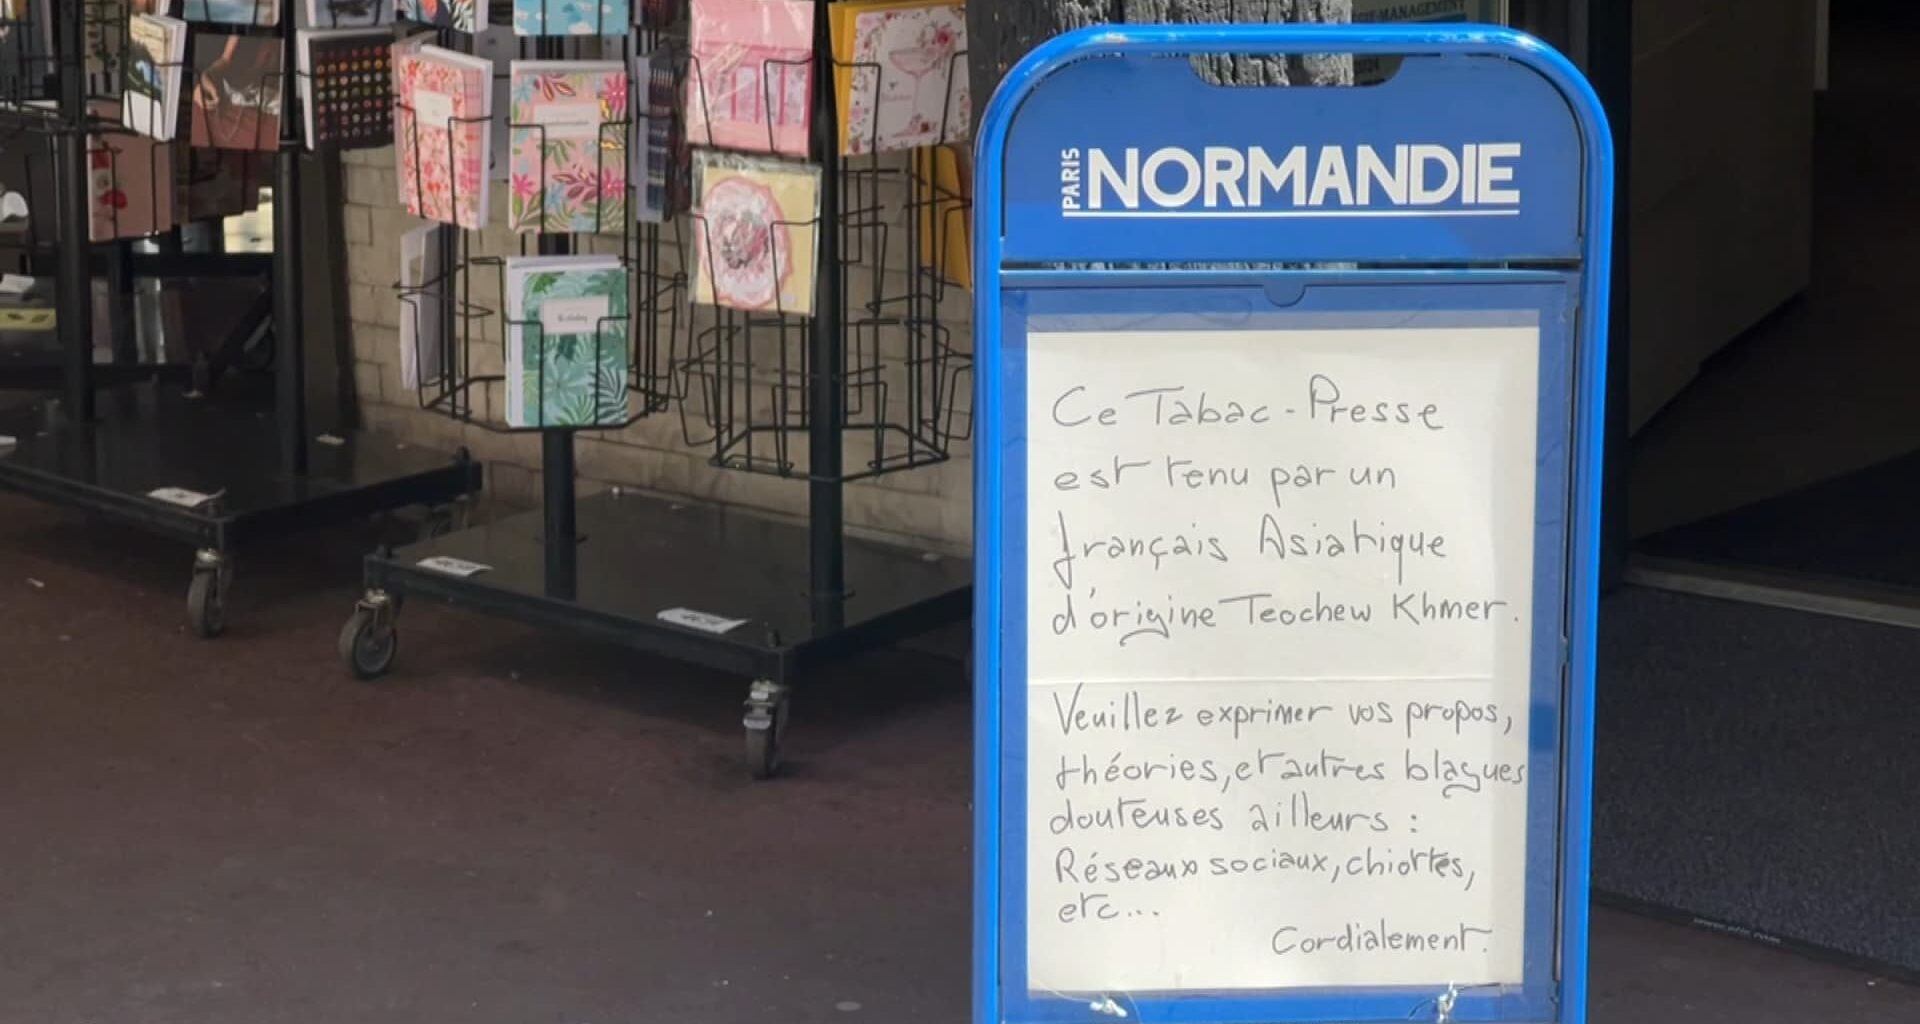 PARIS NORMANDIE
Ce Tabac-Presse
est tenu par un
français Asiatique
d'origine Teochew Khmer.
Veuillez exprimer vos propos,
théories, et autres blagues
douteuses ailleurs :
Réseaux sociaux, chiottes,
etc...
Cordialement.
Birthday